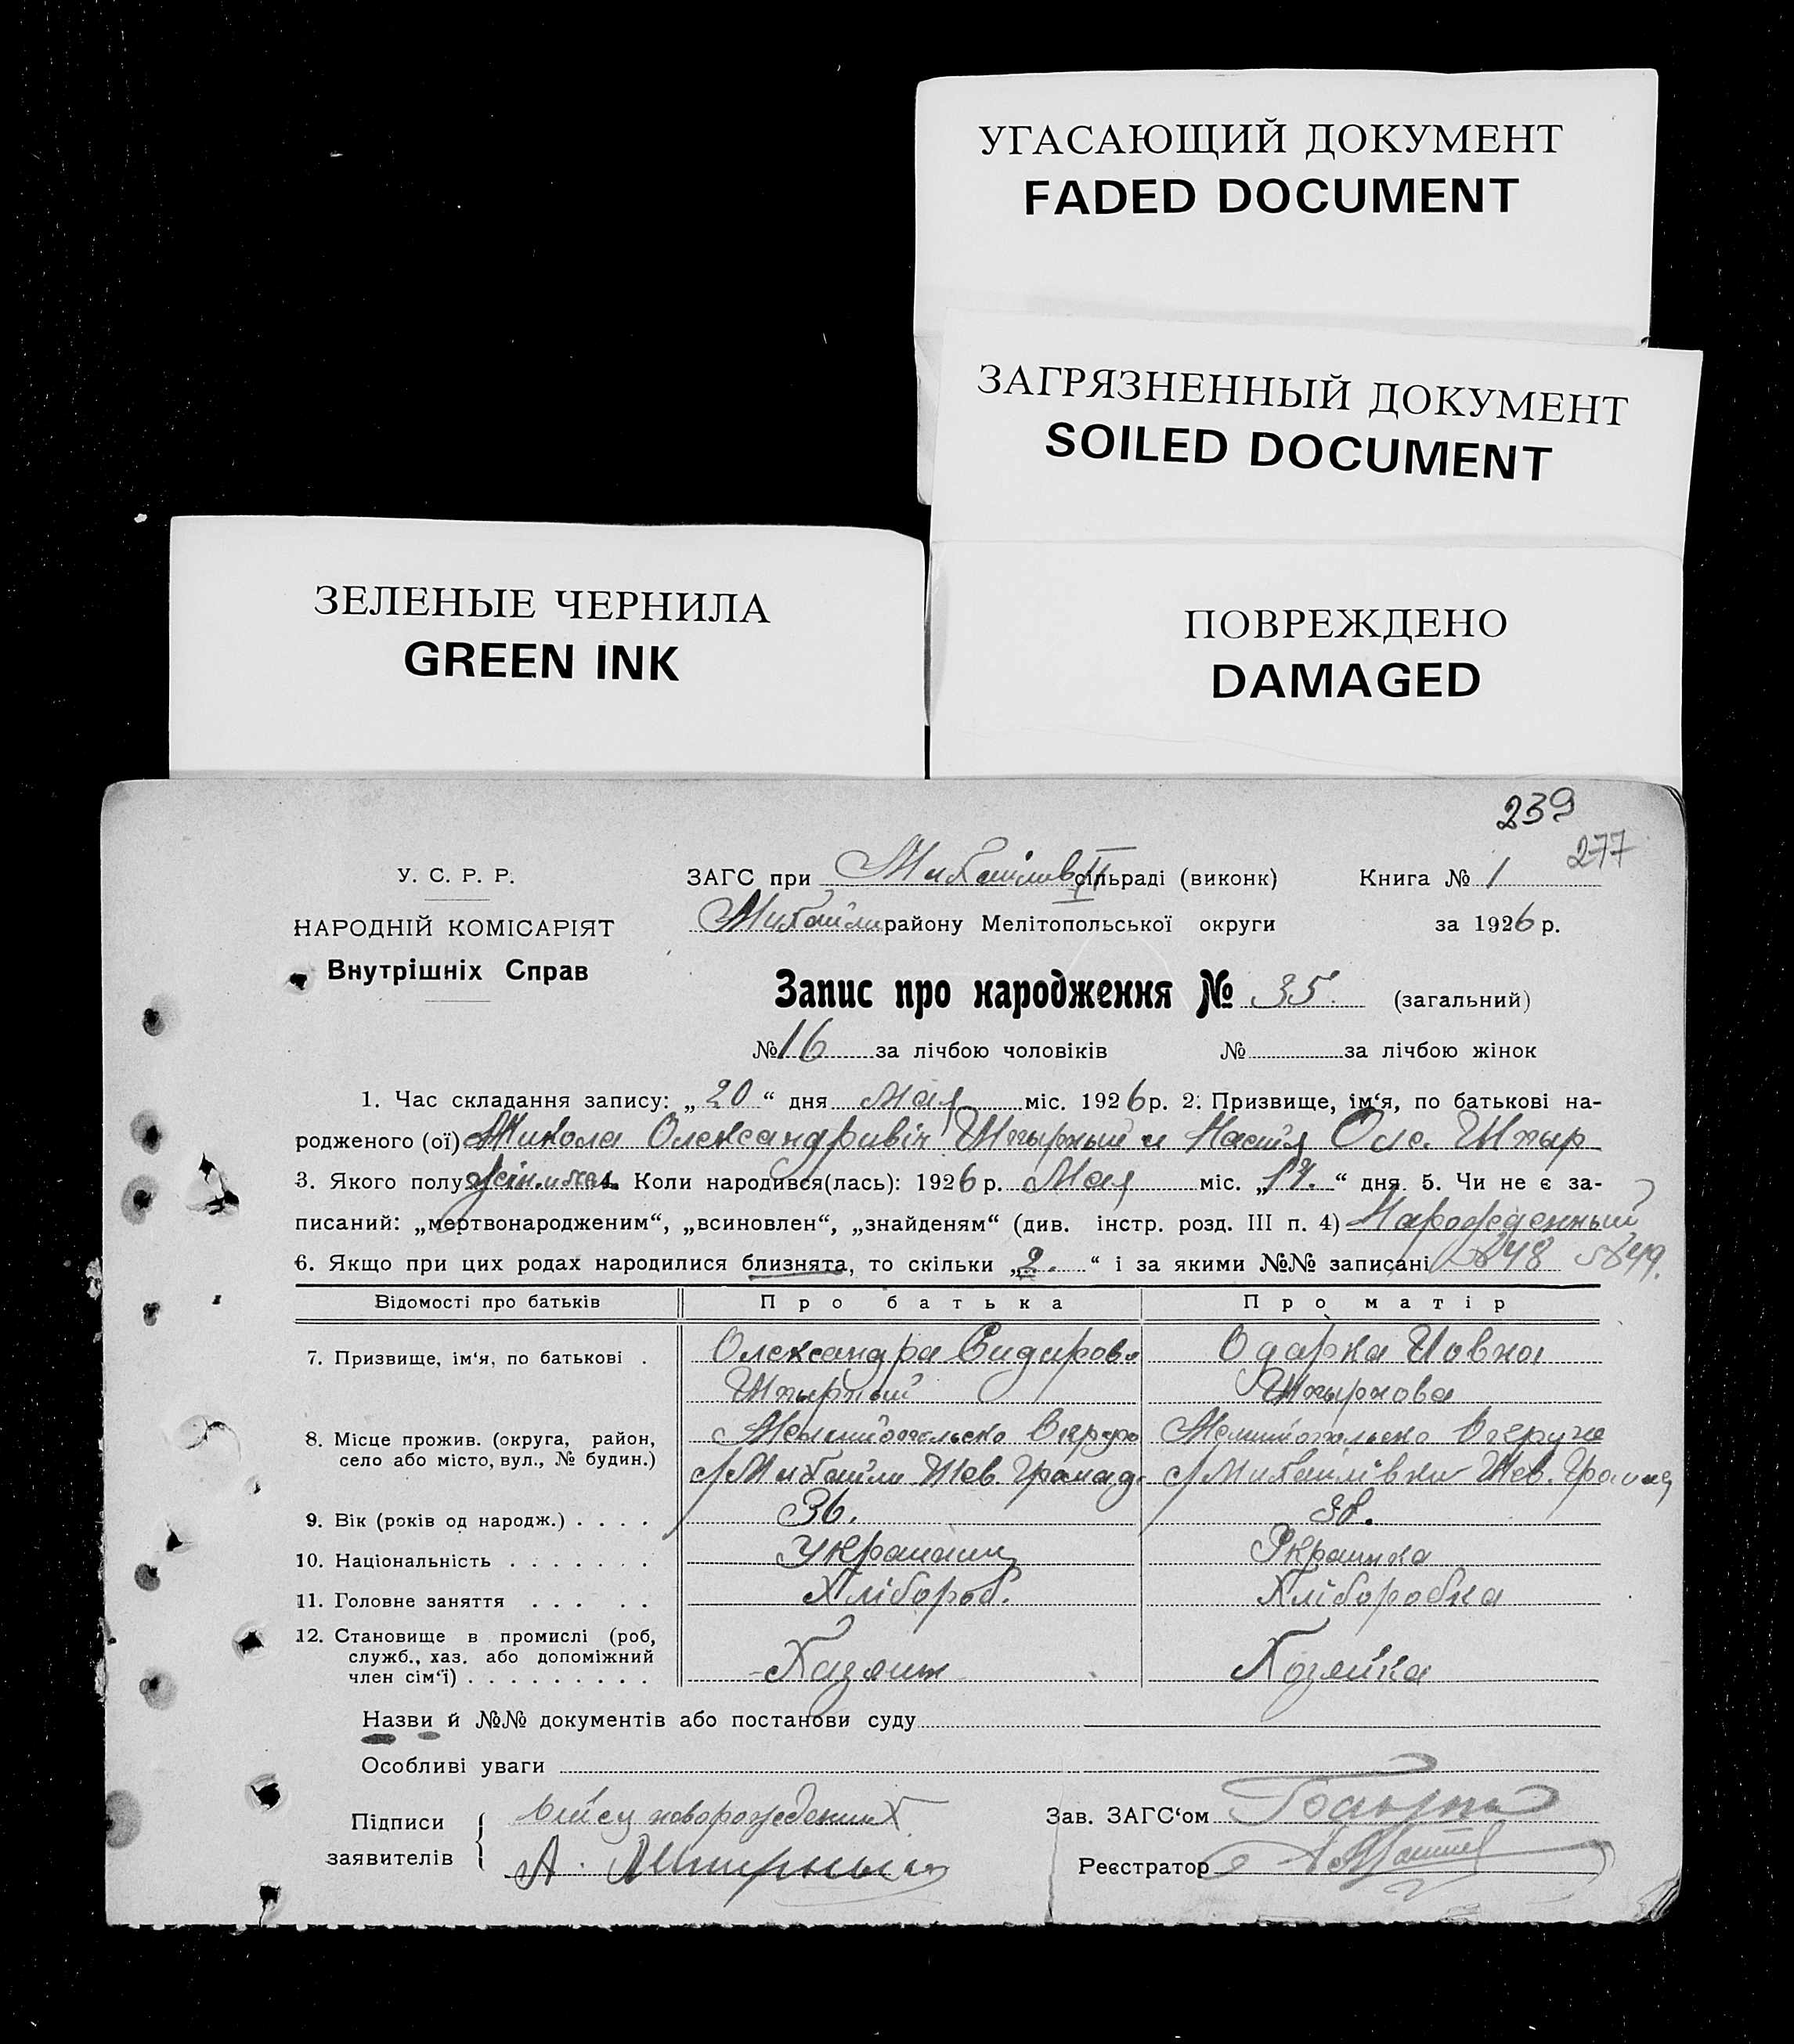 УГАСАЮЩИЙ ДОКУМЕНТ
FADED DOCUMENT
ЗАГРЯЗНЕННЫЙ ДОКУМЕНТ
SOILED DOCUMENT
ЗЕЛЕНЫЕ ЧЕРНИЛА
GREEN INK
ПОВРЕЖДЕНО
DAMAGED
239
277
У. С. Р. Р.
НАРОДНІЙ КОМІСАРІЯТ
Внутрішніх Справ
ЗАГС при Михайлів II сільраді (виконк) Книга № 1
Михайли району Мелітопольської округи за 1926 р.
Запис про народження № 35. (загальний)
№ 16 за лічбою чоловіків № за лічбою жінок
1. Час складання запису: „20“ дня Мая міс. 1926 р. 2. Призвище, ім‘я, по батькові на-
родженого (ої) Микола Олександривіч Штырный и Настя Оле. Штыр
3. Якого полу 4. Коли народився(лась): 1926 р. Мая міс. „17.“ дня. 5. Чи не є за-
писаний: „мертвонародженим“, „всиновлен“, „знайденям“ (див. інстр. розд. III п. 4) Народженный
6. Якщо при цих родах народилися близнята, то скільки „2.“ і за якими №№ записані №48 №49.
Відомості про батьків Про батька Про матір
7. Призвище, ім‘я, по батькові . Олександра Сидиров Одарка Иовна
Штырный Штырнова
8. Місце прожив. (округа, район, село або місто, вул., № будин.) Мелитопольско Округа Мелитопольско Округи
с/Михайли Шев. Громад с/Михаилівки Шев. Громад
9. Вік (років од народж.) . . . . 36. 38.
10. Національність . . . . . . . Украинц Украинка
11. Головне заняття . . . . . Хлібороб. Хліборобка
12. Становище в промислі (роб, служб., хаз. або допоміжний член сім‘ї) . . . . . . . . . Хазяин Хозяйка
Назви й №№ документів або постанови суду
Особливі уваги
Підписи заявителів { Отец новорожденых
А. Штирный
Зав. ЗАГС‘ом
Реєстратор